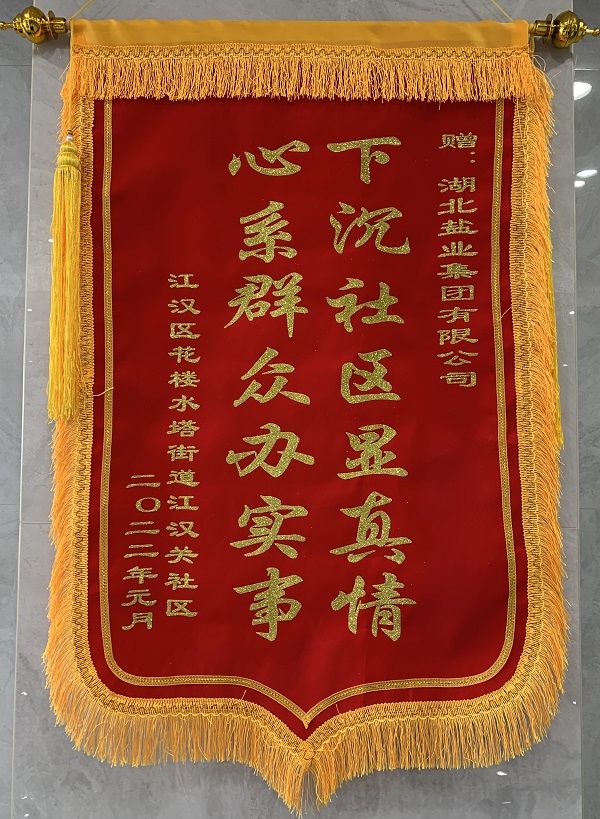 赠：湖北盐业集团有限公司
下沉社区显真情
心系群众办实事
江汉区花楼水塔街道江汉关社区
二〇二二年元月